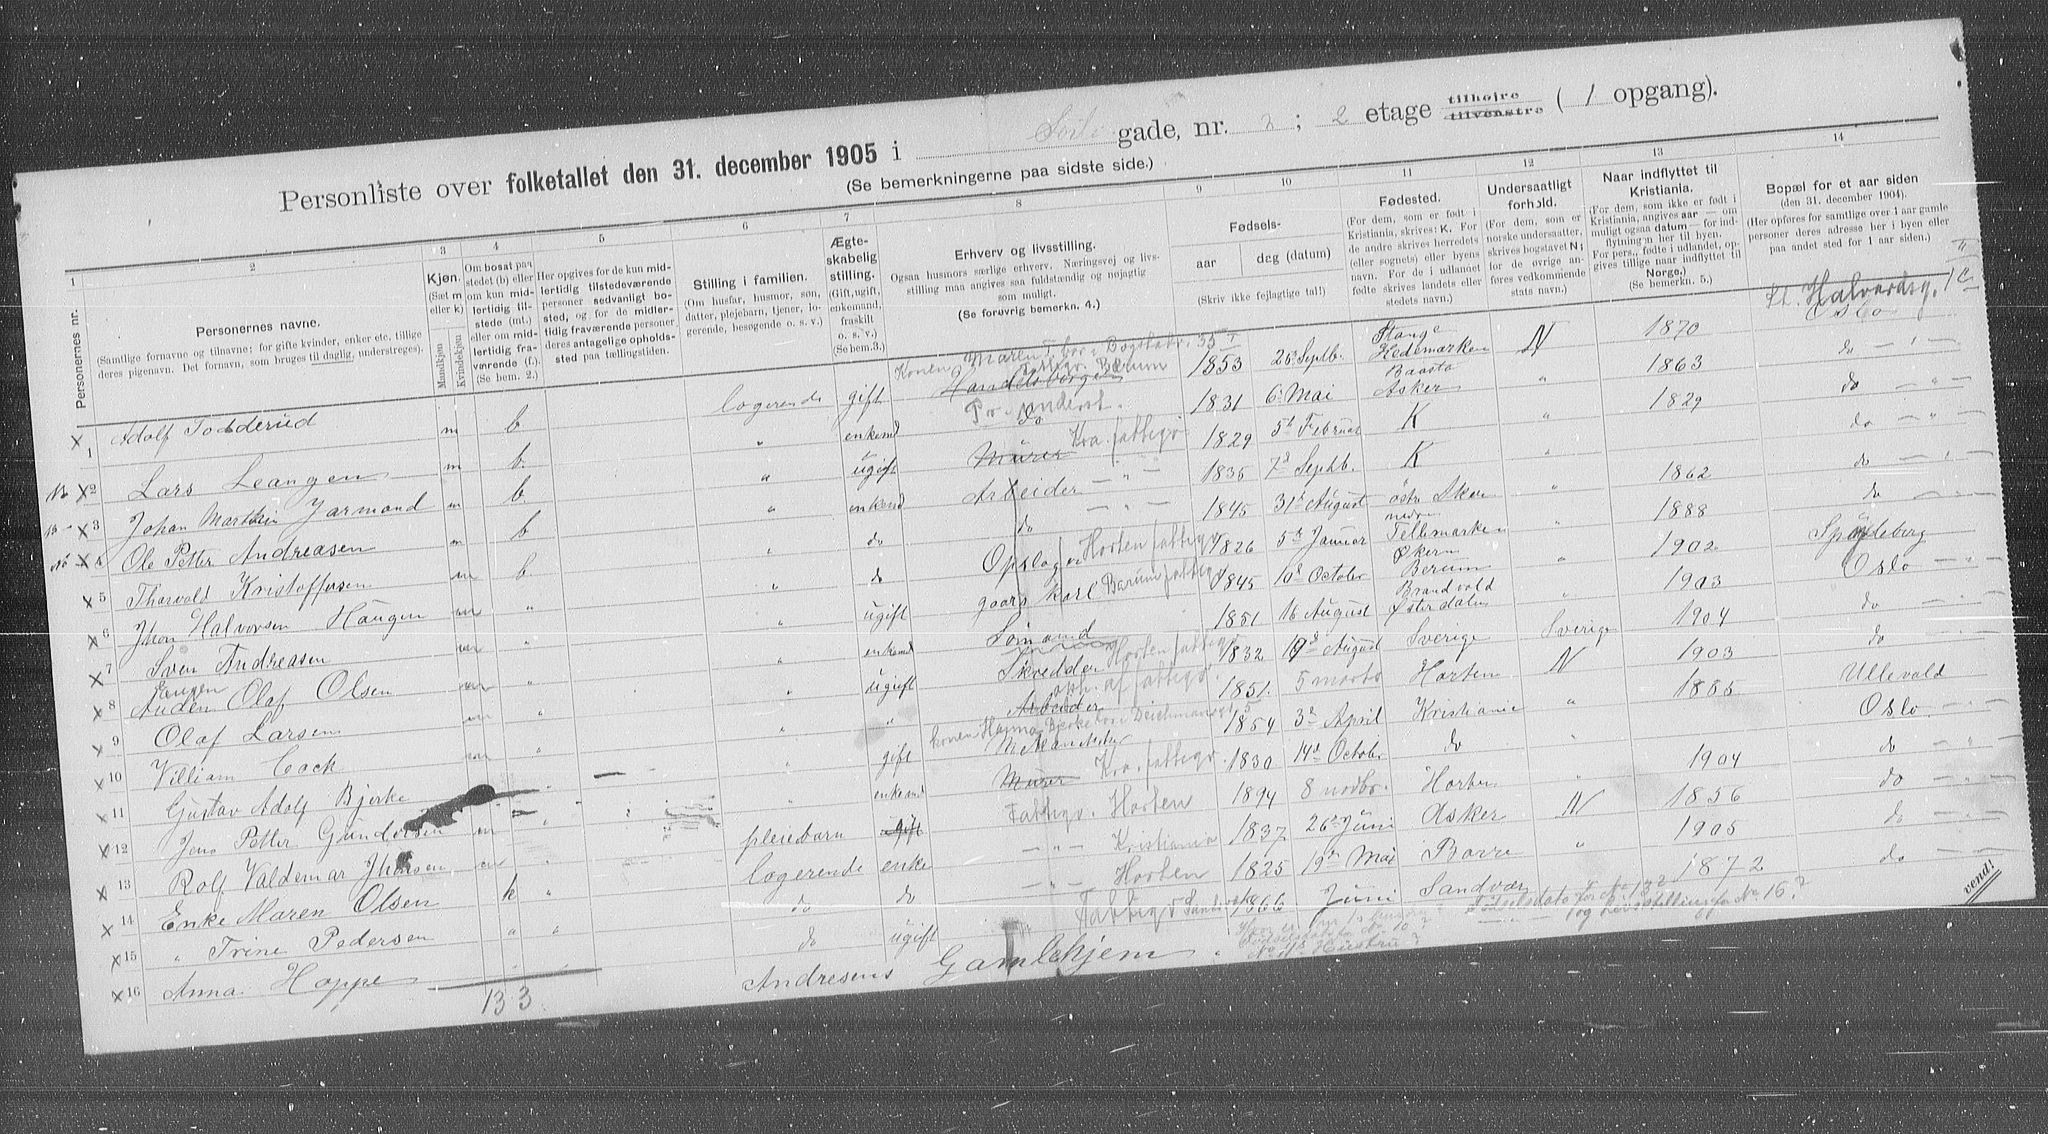 Personliste over folketallet den 31. december 1905 i gade, nr. 2 ; 2 etage tilhøire tilvenstre ( 1 opgang).
(Se bemerkningerne paa sidste side.)
1 2 3 4 5 6 7 8 9 10 11 12 13 14
Personernes nr.
Personernes navne.
(Samtlige fornavne og tilnavne; for gifte kvinder, enker etc. tillige deres pigenavn. Det fornavn, som bruges til daglig, understreges).
Kjøn.
(Sæt m eller k)
Mandkjøn
Kvindekjøn
Om bosat paa stedet (b) eller om kun midlertidig tilstede (mt.) eller om midlertidig fraværende (f.). (Se bem. 2.)
Her opgives for de kun midlertidig tilstedeværende personer sedvanligt bosted, og for de midlertidig fraværende personer deres antagelige opholdssted paa tællingstiden.
Stilling i familien.
(Om husfar, husmor, søn, datter, plejebarn, tjener, logerende, besøgende o. s. v.)
Ægteskabelig stilling.
(Gift, ugift, enkemand, fraskilt o. s. v.)
(Se bem. 3.)
Erhverv og livsstilling.
Ogsaa husmors særlige erhverv. Næringsvej og livsstilling maa angives saa fuldstændig og nøjagtig som muligt.
(Se forøvrig bemerkn. 4.)
Fødsels-
aar
dag (datum)
(Skriv ikke fejlagtige tal!)
Fødested.
(For dem, som er født i Kristiania, skrives: K. For de andre skrives herredets (eller sognets) eller byens navn. For de i udlandet fødte skrives landets eller stedets navn.)
Undersaatligt forhold.
(For dem, som er norske undersaatter, skrives bogstavet N; for de øvrige anføres vedkommende stats navn.)
Naar indflyttet til Kristiania.
(For dem, som ikke er født i Kristiania, angives aar — om muligt ogsaa datum — for indflytningen her til byen. For pers., fødte i udlandet, opgives tillige naar indflyttet til Norge.)
(Se bemerkn. 5.)
Bopæl for et aar siden
(den 31. december 1904).
(Her opføres for samtlige over 1 aar gamle personer deres adresse her i byen eller paa andet sted for 1 aar siden.)
St. Halvardsg. 1 C
1 Adolf Todderud m b logerende gift Handelsborger 1853 Septb. Stange Hedemarken N 1870 Oslo
2 Lars Leangen m b. " enkemd do 1831 6 Mai Asker " 1863 do — " —
3 Johan Martin Jarmond m b " ugift Murer Kra. fattigv 1829 5 Februar K " 1829 do — " —
4 Ole Petter Andreasen m b " enkemd Arbeider — " — 1835 7 Septb. K " do — " —
5 Thorvald Kristoffersen m b " do do — " — 1845 31 August Aker " 1862 do — " —
6 Jhon Halvorsen Haugen m " " do Horten fattigv 1826 5 Januer Tellemarken " 1888 do
7 Sven Andreasen m " " ugift gaars karl Bærum fattigv 1845 10 October Berum " 1902 Spydeberg
8 Olaf Olsen m " " enkemd 1851 16 August Brandvold Østerdalen " 1903 Oslo
9 Olaf Larsen m " " ugift Skredder Horten fattigv 1832 August Sverige Sverige 1904 do
10 William Cock m " " " Arbeider 1851. 5 marts Horten N 1903 do
11 Gustav Adolf Bjerke " " gift 1854 3 April Kristiania " 1885 Ullevold
12 Jens Petter Gundersen m " " enkemd Murer Kra. fattigv. 1830 14 October do " Oslo
13 Rolf Valdemar Jhansen m pleiebarn gift Fattigv. Horten 1894 8 novbr. Horten " 1904 do — " —
14 Enke Maren Olsen k " logerende enke — " — Kristiania 1837 26 Juni Asker N 1856 do — " —
15 " Trine Pedersen " " do do — " — Horten 1825 19 Mai Borre " 1905 do — " —
16 Anna Hoppe do ugift Fattigv 1866 Juni Sandvær 1872 do — " —
13 3
Andresens Gamlehjem
Fødselsdato for No 13?
og Livsstilling for No 16?
vend!